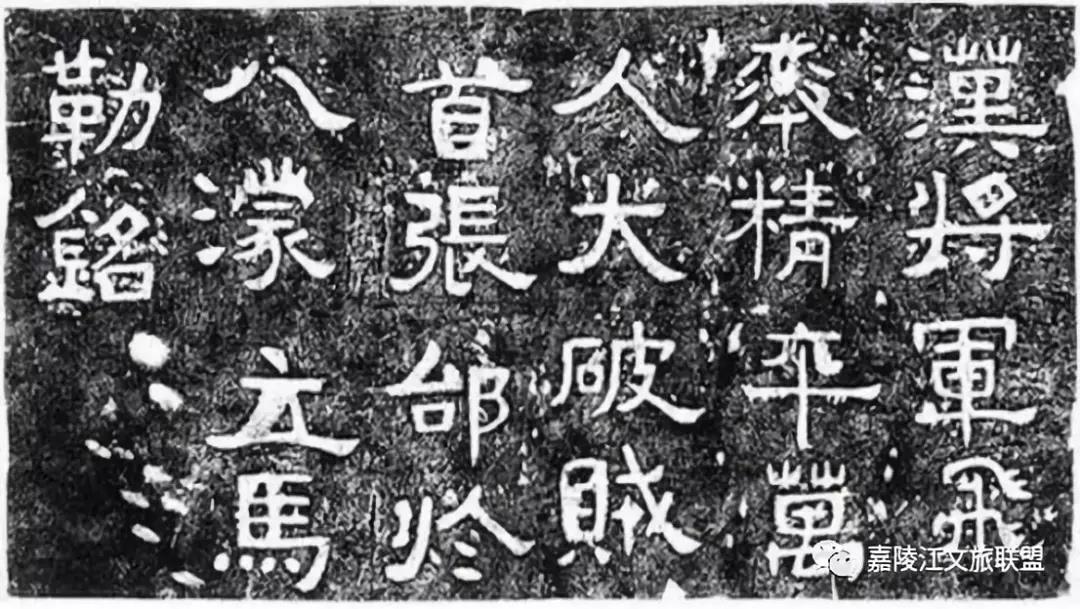 漢將軍飛
率精卒萬
人大破賊
首張郃於
八濛立馬
勒銘
嘉陵江文旅联盟